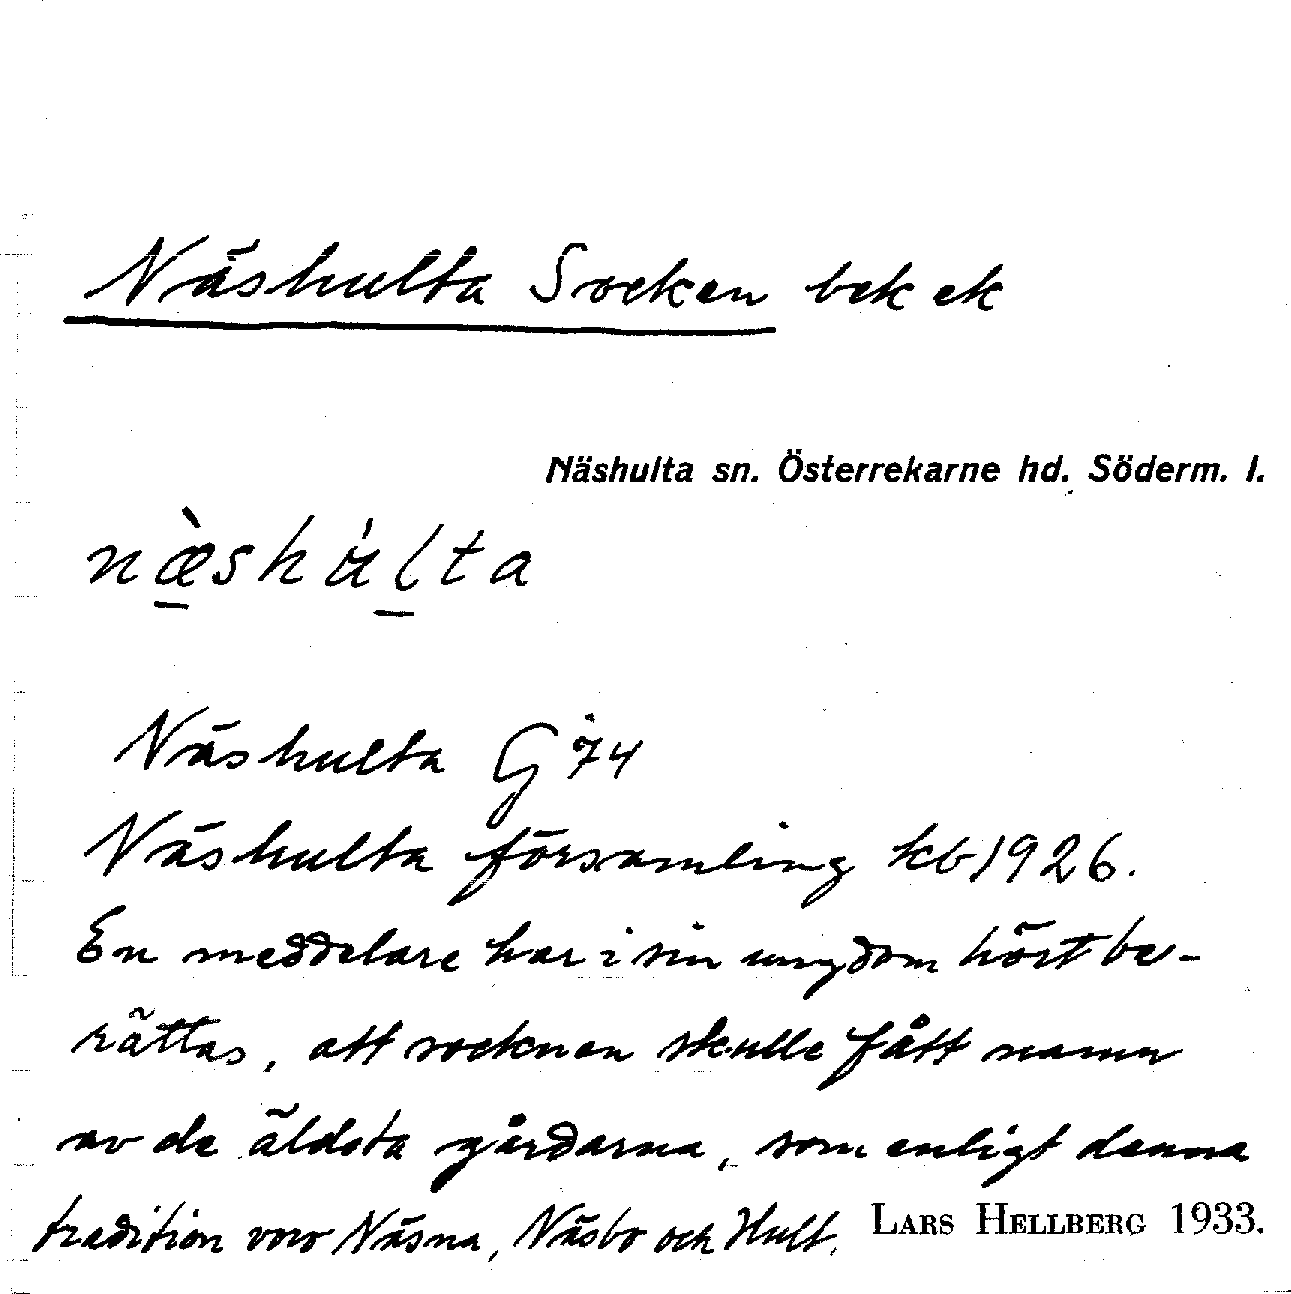 Näshulta Socken bek ek
Näshulta sn. Österrekarne hd. Söderm. l.
næ̀shu̇lta
Näshulta G 74
Näshulta församling kb 1926.
En meddelare har i sin ungdom hört be-
rättas, att socknen skulle fått namn
av de äldsta gårdarna, som enligt denna
tradition voro Näsna, Näsbo och Hult.
LARS HELLBERG 1933.